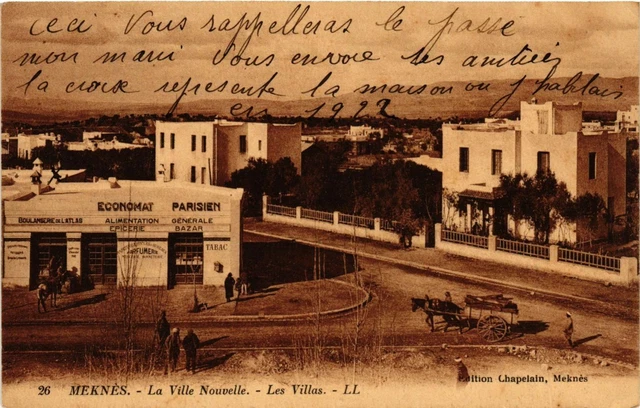 ceci Vous rappelleras le passe
mon mari Vous envoie ses amitiés
la croix represente la maison ou J habitais
en 1922
ECONOMAT PARISIEN
BOULANGERIE DE L'ATLAS ALIMENTATION GÉNÉRALE
EPICERIE BAZAR
PARFUMERIE TABAC
26 MEKNÈS. - La Ville Nouvelle. - Les Villas. - LL
Edition Chapelain, Meknès